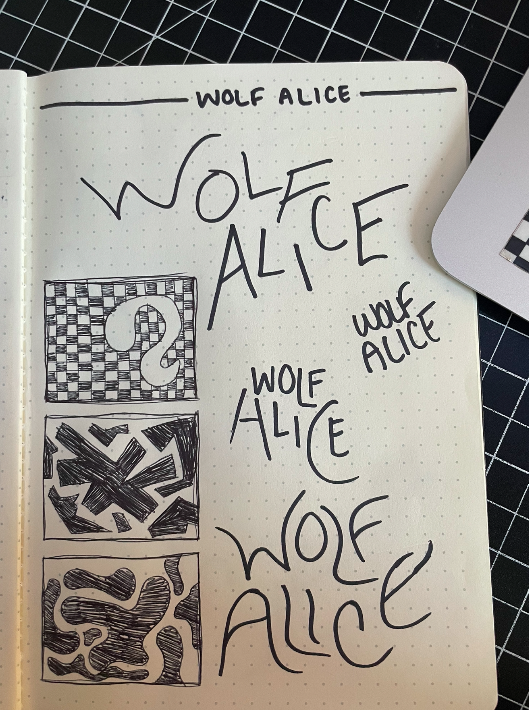 WOLF ALICE
WOLF
ALICE
WOLF
ALICE
WOLF
ALICE
WOLF
ALICE